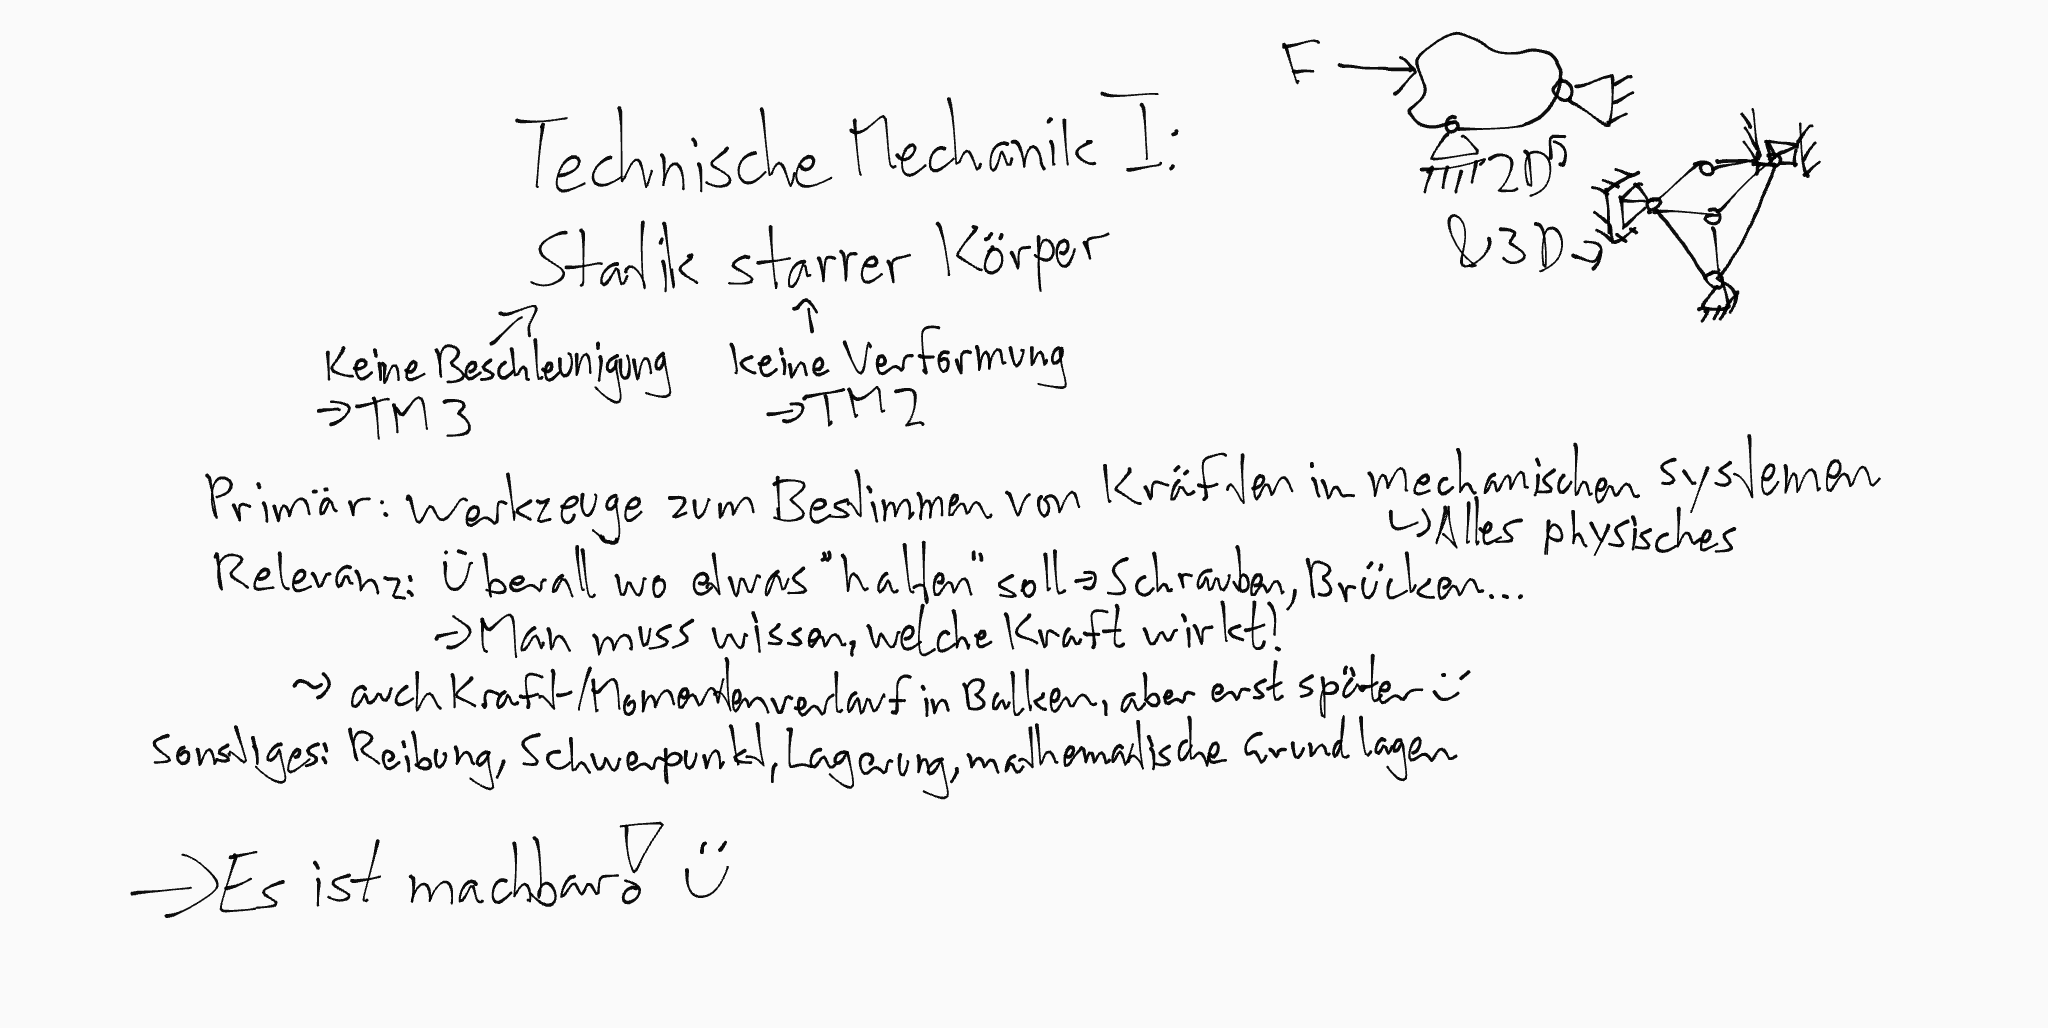 F
Technische Mechanik I:
2D
Statik starrer Körper
& 3D →
Keine Beschleunigung keine Verformung
→ TM 3 → TM 2
Primär: Werkzeuge zum Bestimmen von Kräften in mechanischen Systemen
↳ Alles physisches
Relevanz: Überall wo etwas "halten" soll → Schrauben, Brücken...
→ Man muss wissen, welche Kraft wirkt!
~> auch Kraft-/Momentenverlauf in Balken, aber erst später :)
Sonstiges: Reibung, Schwerpunkt, Lagerung, mathematische Grundlagen
→ Es ist machbar! :)